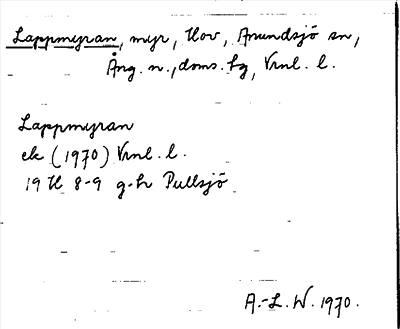 Lappmyran, myr, Hov, Anundsjö sn,
Ång. n., doms. hg, Vrnl. l.
Lappmyran
ek (1970) Vrnl. l.
19 H 8-9 g-h Pullsjö
A.-L. W. 1970.